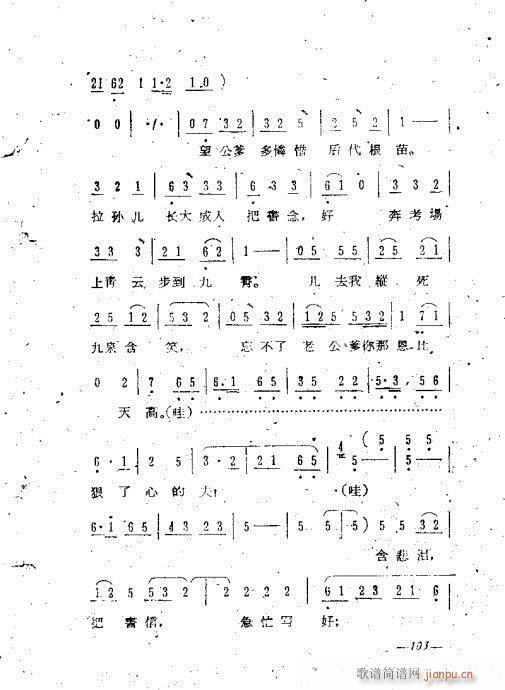 21 62 1 1·2 1 0 )
0 0 | ·/· | 07 32 | 32 5 | 2 5 2 | 1 — |
望公爹 多憐惜 后代根苗。
3 2 1 | 63 33 | 63 5 | 61 0 | 3 23 |
拉孙儿 长大成人 把書念，好 奔考場
33 3 | 21 62 | 1 — | 05 55 | 21 25 |
上青云 步到九霄。 儿去我縱死
25 12 | 532 | 05 32 | 125 532 | 1 71 |
九泉含笑， 忘不了 老公爹你那恩比
0 2 | 7 65 | 6·1 65 | 35 22 | 5·3, 56 |
天高。(哇)
6·1 | 2 5 | 3·2 | 21 65 | 5 — | 5 — |
狠了心的夫， (哇)
6·1 65 | 43 23 | 5 — | 5 — ) | 55 32 |
含悲泪，
12 5 532 | 2 2 2 2 | 61 23 21 6 |
把書信， 急忙写好；
—103—
歌谱简谱网 jianpu.cn